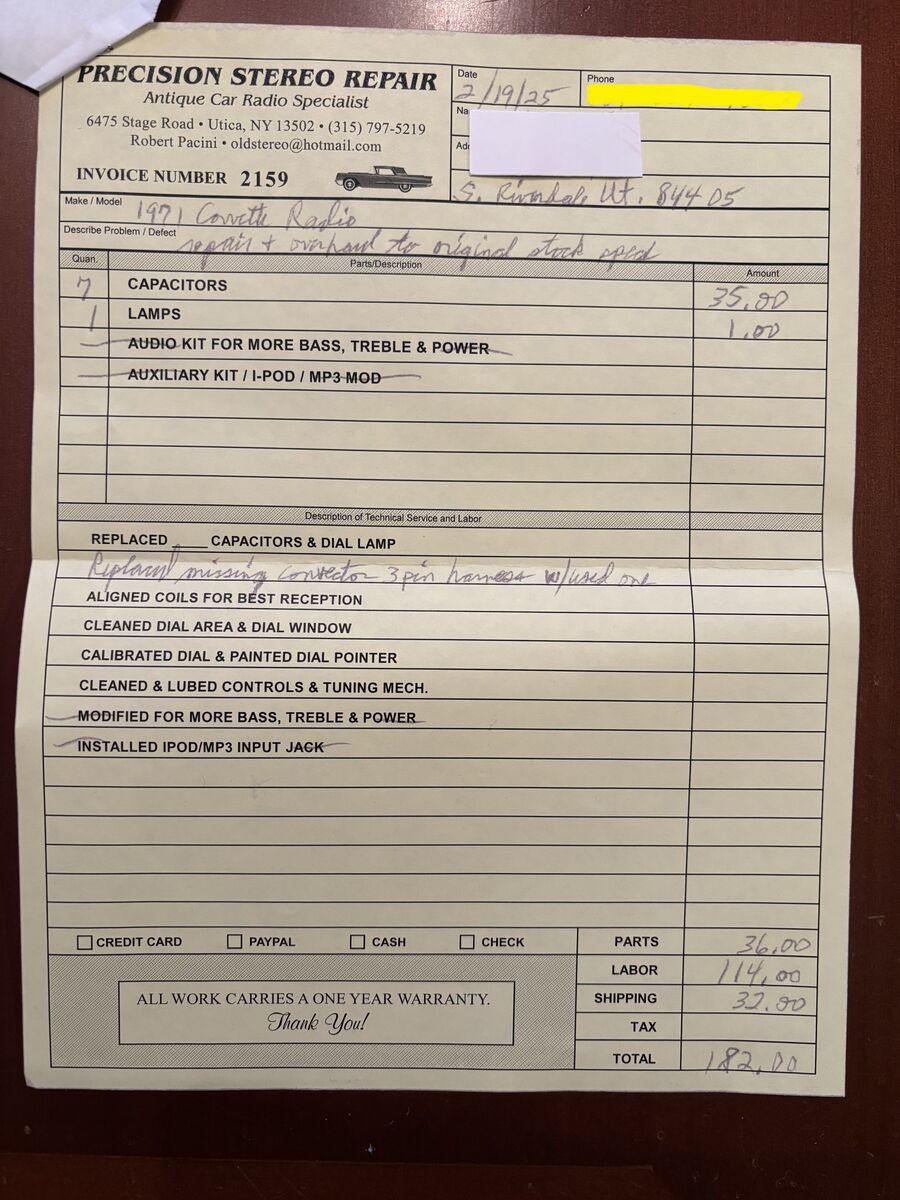 PRECISION STEREO REPAIR
Antique Car Radio Specialist
6475 Stage Road • Utica, NY 13502 • (315) 797-5219
Robert Pacini • oldstereo@hotmail.com
INVOICE NUMBER 2159
Date
2/19/25
Phone
Na
Add
S. Riverdale Ut. 84405
Make / Model
1971 Corvette Radio
Describe Problem / Defect
repair + overhaul to original stock
Quan. Parts/Description Amount
7 CAPACITORS 35.00
1 LAMPS 1.00
AUDIO KIT FOR MORE BASS, TREBLE & POWER
AUXILIARY KIT / I-POD / MP3 MOD
Description of Technical Service and Labor
REPLACED ____ CAPACITORS & DIAL LAMP
Replaced missing 3 pin harness w/used one
ALIGNED COILS FOR BEST RECEPTION
CLEANED DIAL AREA & DIAL WINDOW
CALIBRATED DIAL & PAINTED DIAL POINTER
CLEANED & LUBED CONTROLS & TUNING MECH.
MODIFIED FOR MORE BASS, TREBLE & POWER
INSTALLED IPOD/MP3 INPUT JACK
CREDIT CARD PAYPAL CASH CHECK
PARTS 36.00
LABOR 114.00
SHIPPING 32.00
TAX
TOTAL 182.00
ALL WORK CARRIES A ONE YEAR WARRANTY.
Thank You!